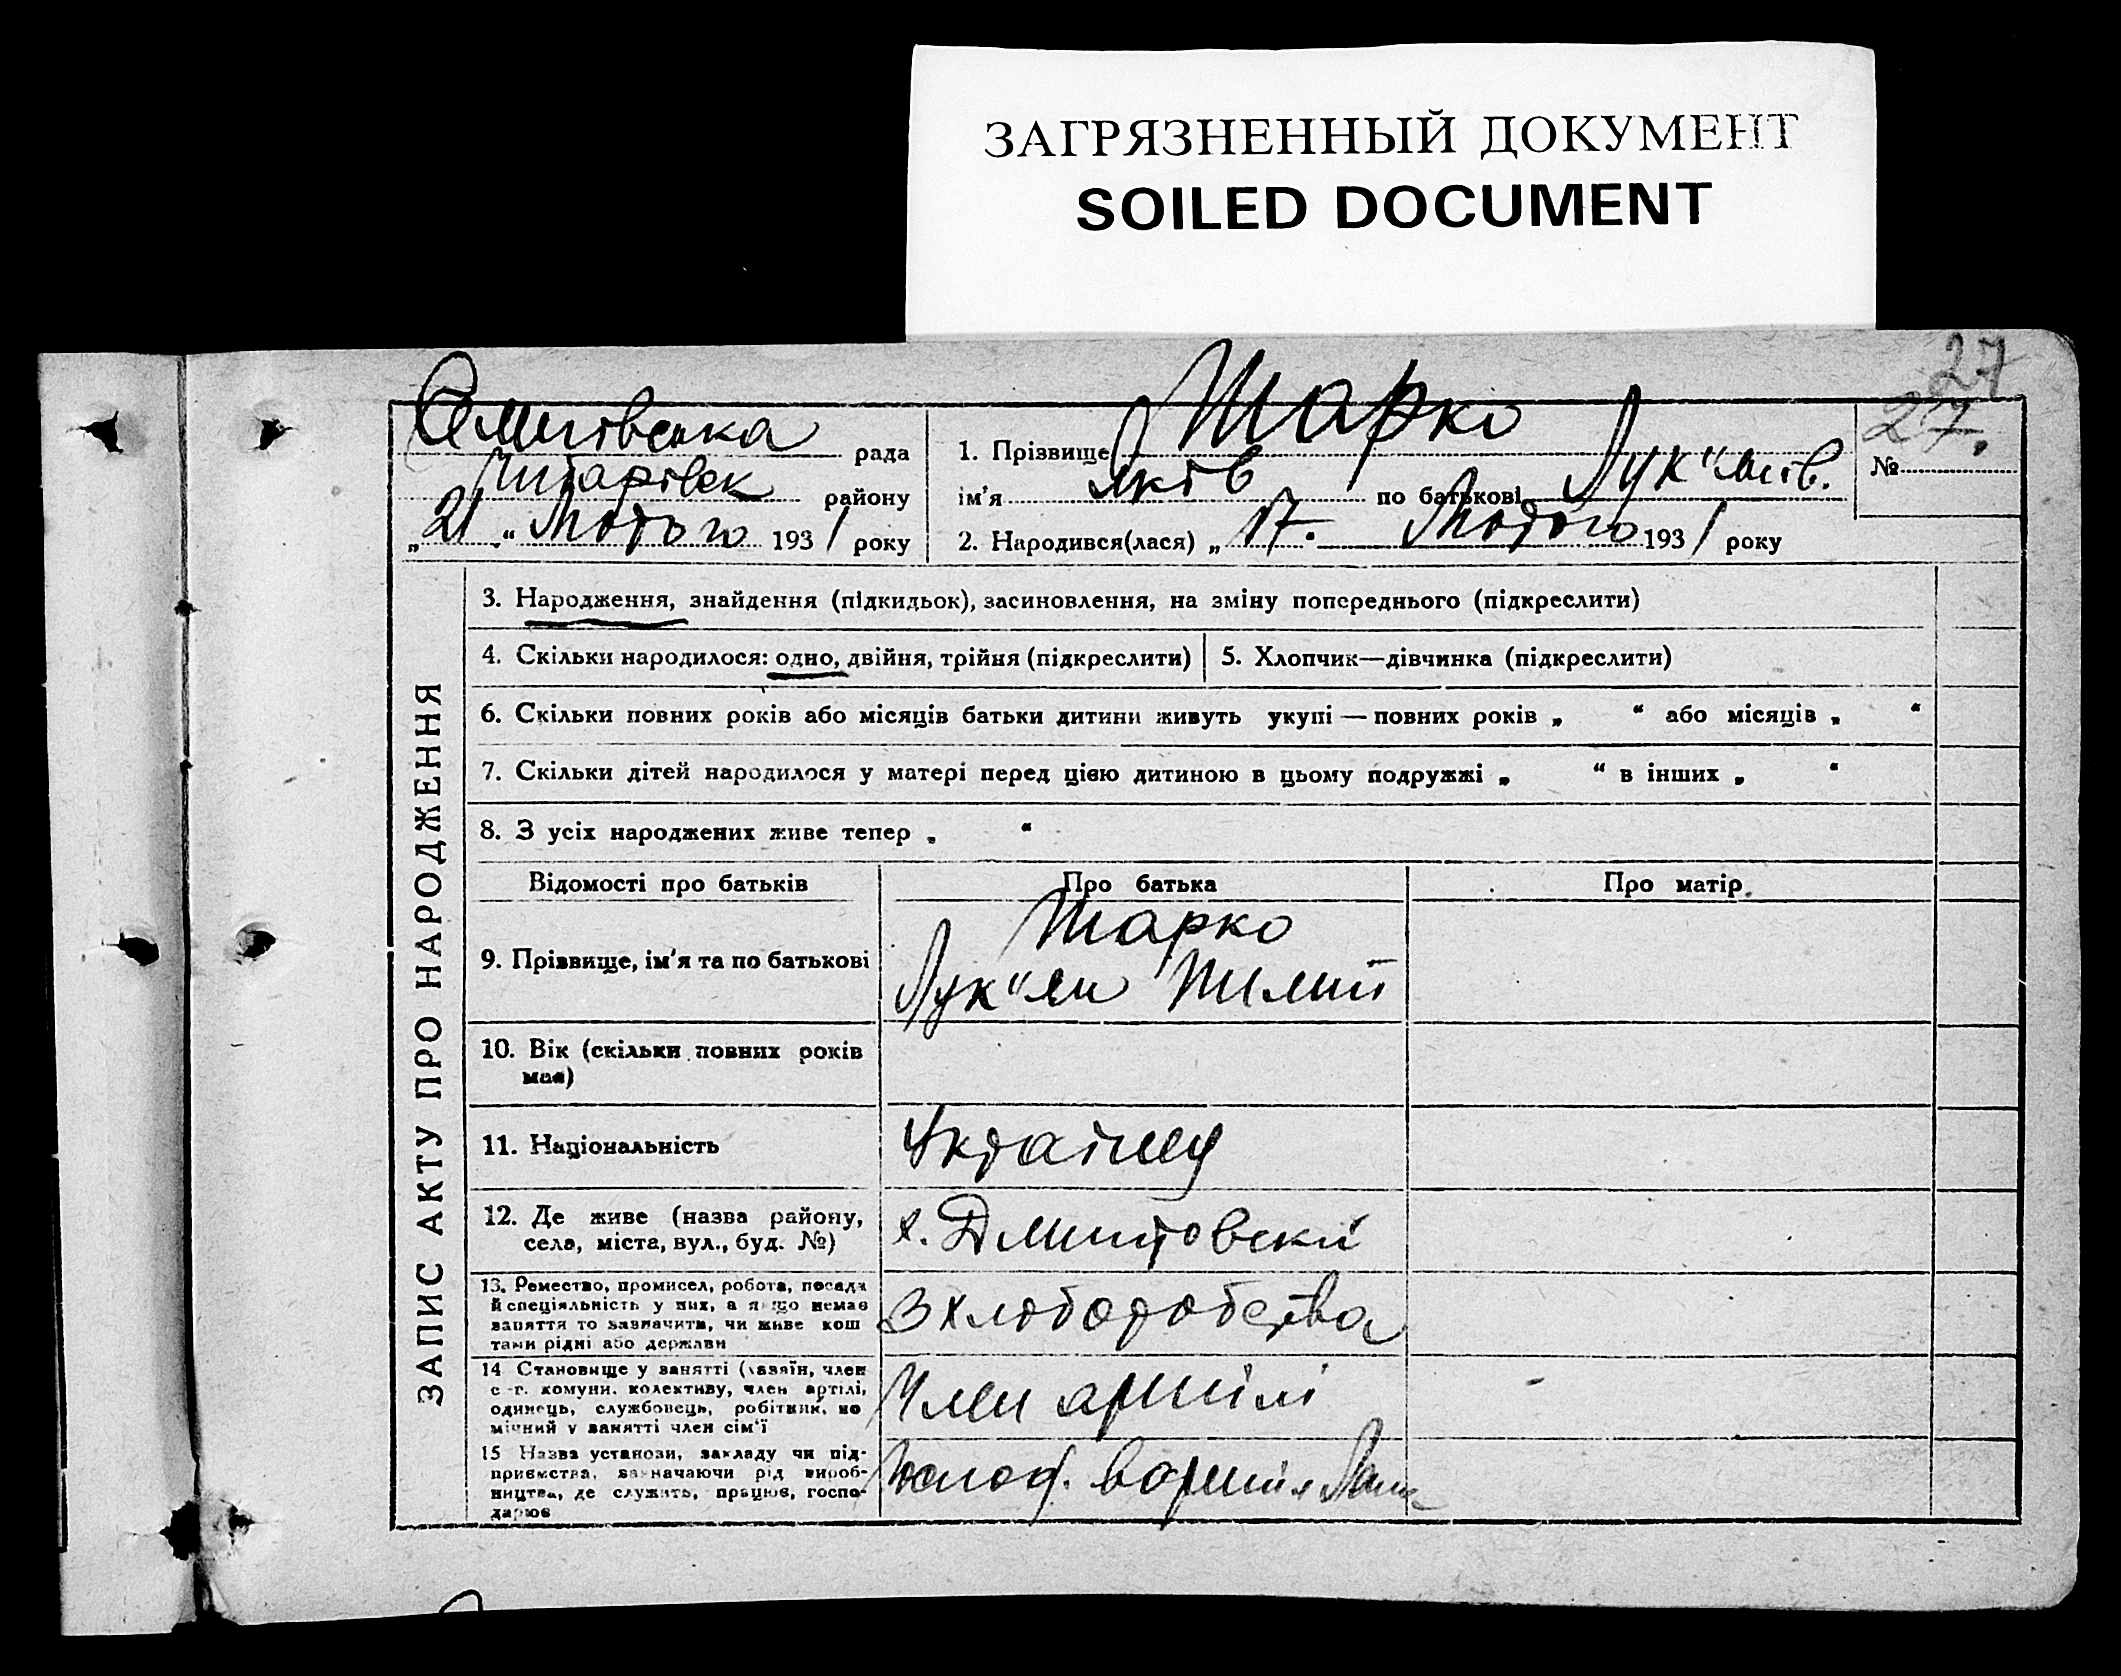 ЗАГРЯЗНЕННЫЙ ДОКУМЕНТ
SOILED DOCUMENT
27
27.
рада
району
„21“ Лютого 1931 року
1. Прізвище Шарко
ім'я Яків по батькові Лук"янів.
2. Народився(лася) „17. Лютого 1931 року
№
ЗАПИС АКТУ ПРО НАРОДЖЕННЯ
3. Народження, знайдення (підкидьок), засиновлення, на зміну попереднього (підкреслити)
4. Скільки народилося: одно, двійня, трійня (підкреслити)
5. Хлопчик—дівчинка (підкреслити)
6. Скільки повних років або місяців батьки дитини живуть укупі — повних років „ “ або місяців „ “
7. Скільки дітей народилося у матері перед цією дитиною в цьому подружжі „ “ в інших „ “
8. З усіх народжених живе тепер „ “
Відомості про батьків
Про батька
Про матір
9. Прізвище, ім'я та по батькові
Шарко
Лук"ян
10. Вік (скільки повних років
має)
11. Національність
12. Де живе (назва району,
села, міста, вул., буд. №)
х.
13. Ремество, промисел, робота, посада
й спеціяльність у них, а якщо немає
заняття то зазначити, чи живе кош
тами рідні або держави
З хлоборобства
14 Становище у занятті (хазяїн, член
с.-г. комуни, колективу, член артілі,
одинець, службовець, робітник, по
мічний у занятті член сім'ї
Член артілі
15 Назва установи, закладу чи під-
приємства, зазначаючи рід вироб-
ництва, де служить, працює, госпо-
дарює